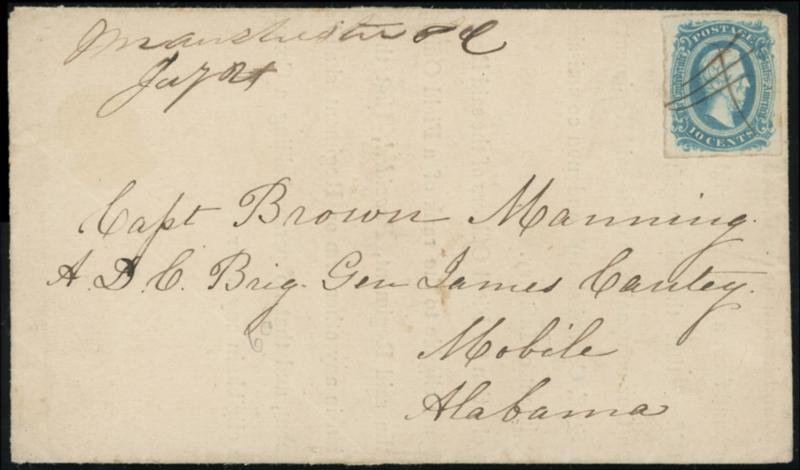 Manchester SC
POSTAGE
Confederate States America
10 CENTS
Capt Brown Manning.
A. D. C. Brig. Gen James Cantey.
Mobile
Alabama